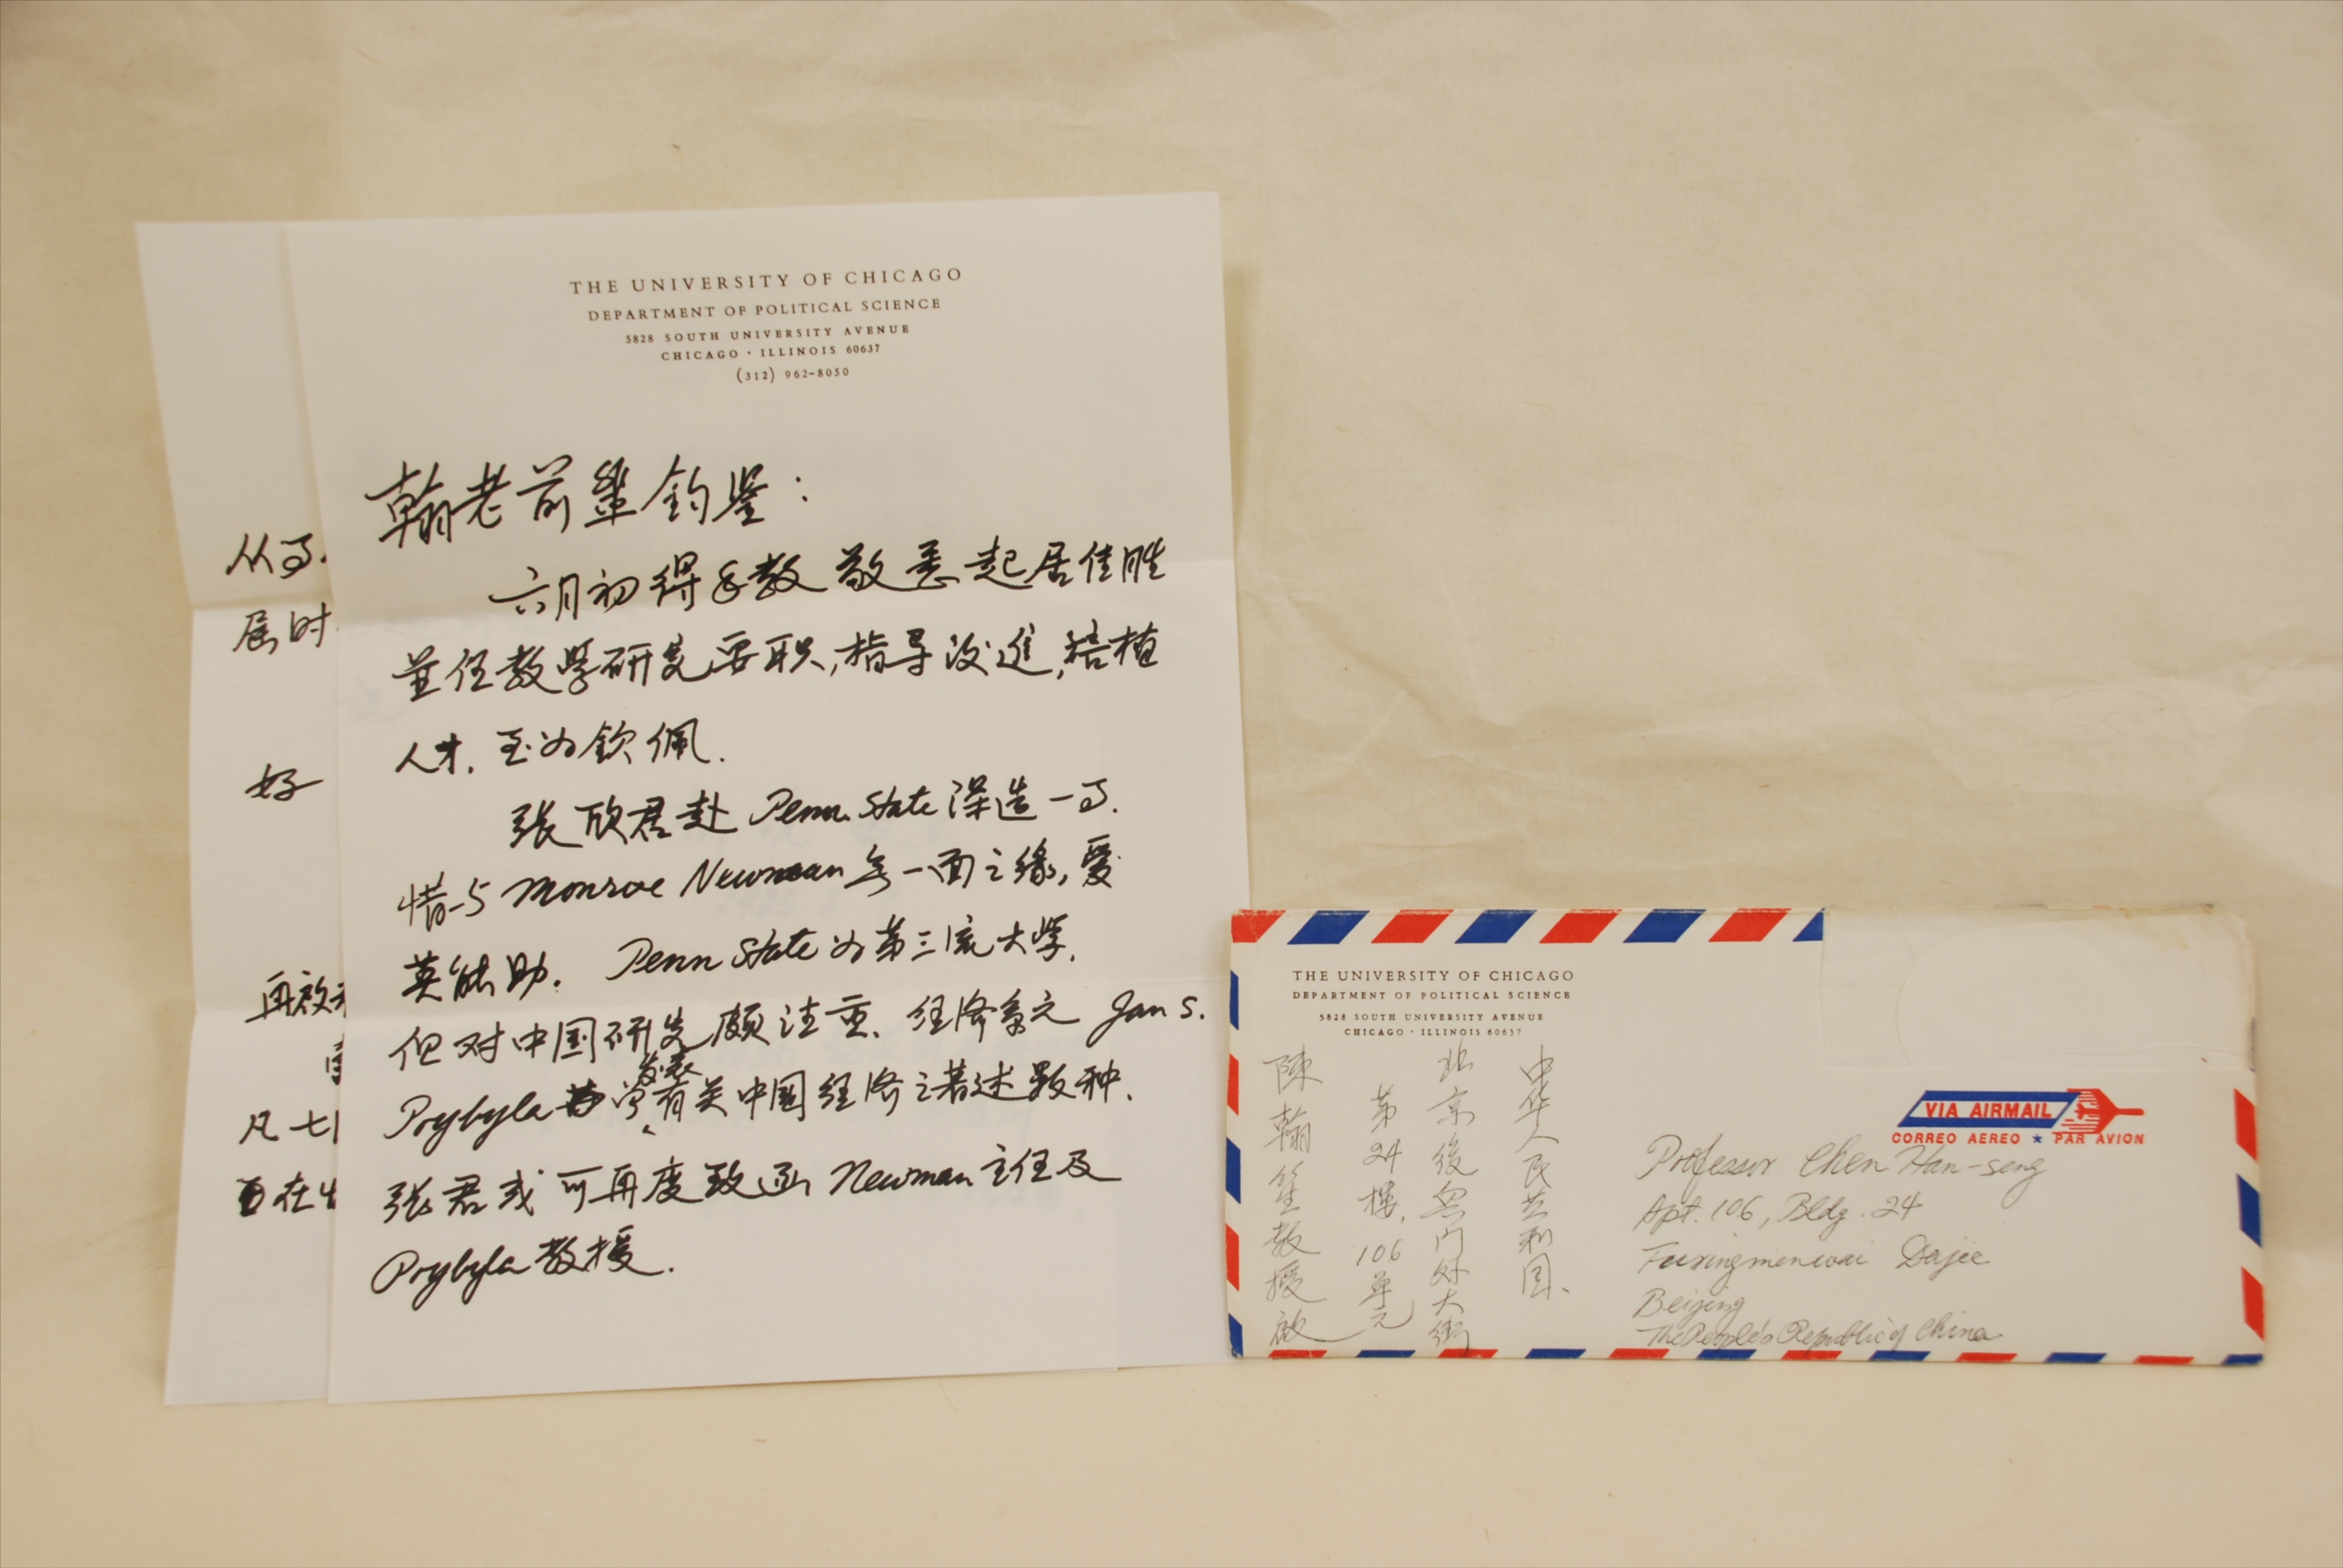 THE UNIVERSITY OF CHICAGO
DEPARTMENT OF POLITICAL SCIENCE
5828 SOUTH UNIVERSITY AVENUE
CHICAGO · ILLINOIS 60637
(312) 962-8050
翰老前辈钧鉴：
六月初得手教敬悉起居佳胜
並任教学研究要职,指导后進,培植
人才,至为钦佩.
张欣君赴 Penn. State 深造一事.
惜与 Monroe Newman 无一面之缘,爱
莫能助. Penn State 为第三流大学.
但对中国研究颇注重.经济系之 Jan S.
Prybyla 曾发表有关中国经济之著述数种.
张君或可再度致函 Newman 主任及
Prybyla 教授.
从事.
届时
好
再敬
凡七
在
THE UNIVERSITY OF CHICAGO
DEPARTMENT OF POLITICAL SCIENCE
5828 SOUTH UNIVERSITY AVENUE
CHICAGO · ILLINOIS 60637
中华人民共和国、
北京復兴门外大街
第24楼,106单元
陳翰笙教授啟
VIA AIRMAIL
CORREO AEREO ★ PAR AVION
Professor Chen Han-seng
Apt. 106, Bldg. 24
Fuxingmenwai Dajie
Beijing
The People's Republic of China